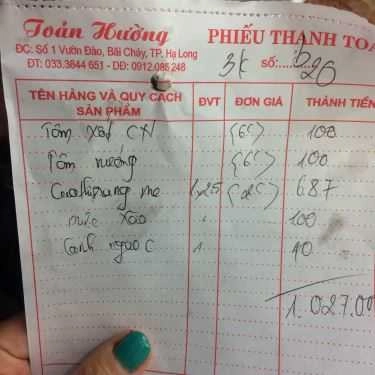 Toản Hường
PHIẾU THANH TOÁ
ĐC: Số 1 Vườn Đào, Bãi Cháy, TP. Hạ Long
ĐT: 033.3844 651 - DĐ: 0912.086 248
3k số: b26
TÊN HÀNG VÀ QUY CÁCH SẢN PHẨM ĐVT ĐƠN GIÁ THÀNH TIỀN
Tôm xào (6c) 100
Tôm nướng (6c) 100
rang me 1,25 (2c) 687
mực xào 100
Canh ngao c 1 40
1.027.00